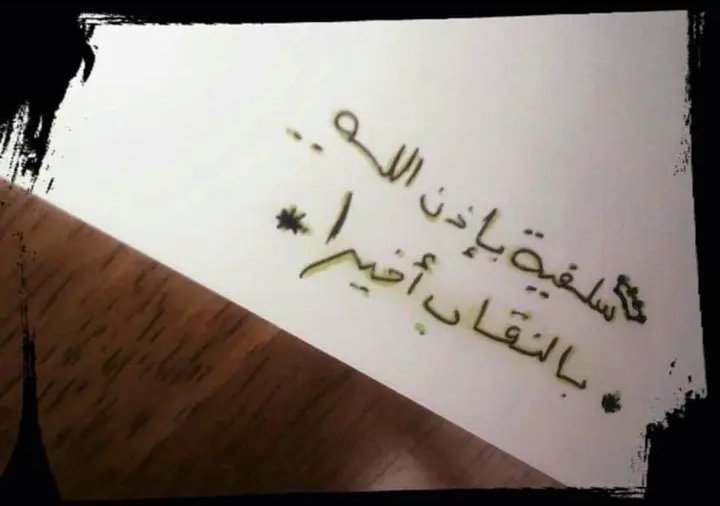 سلفية بإذن الله..
* بالنقاب أخيرا *